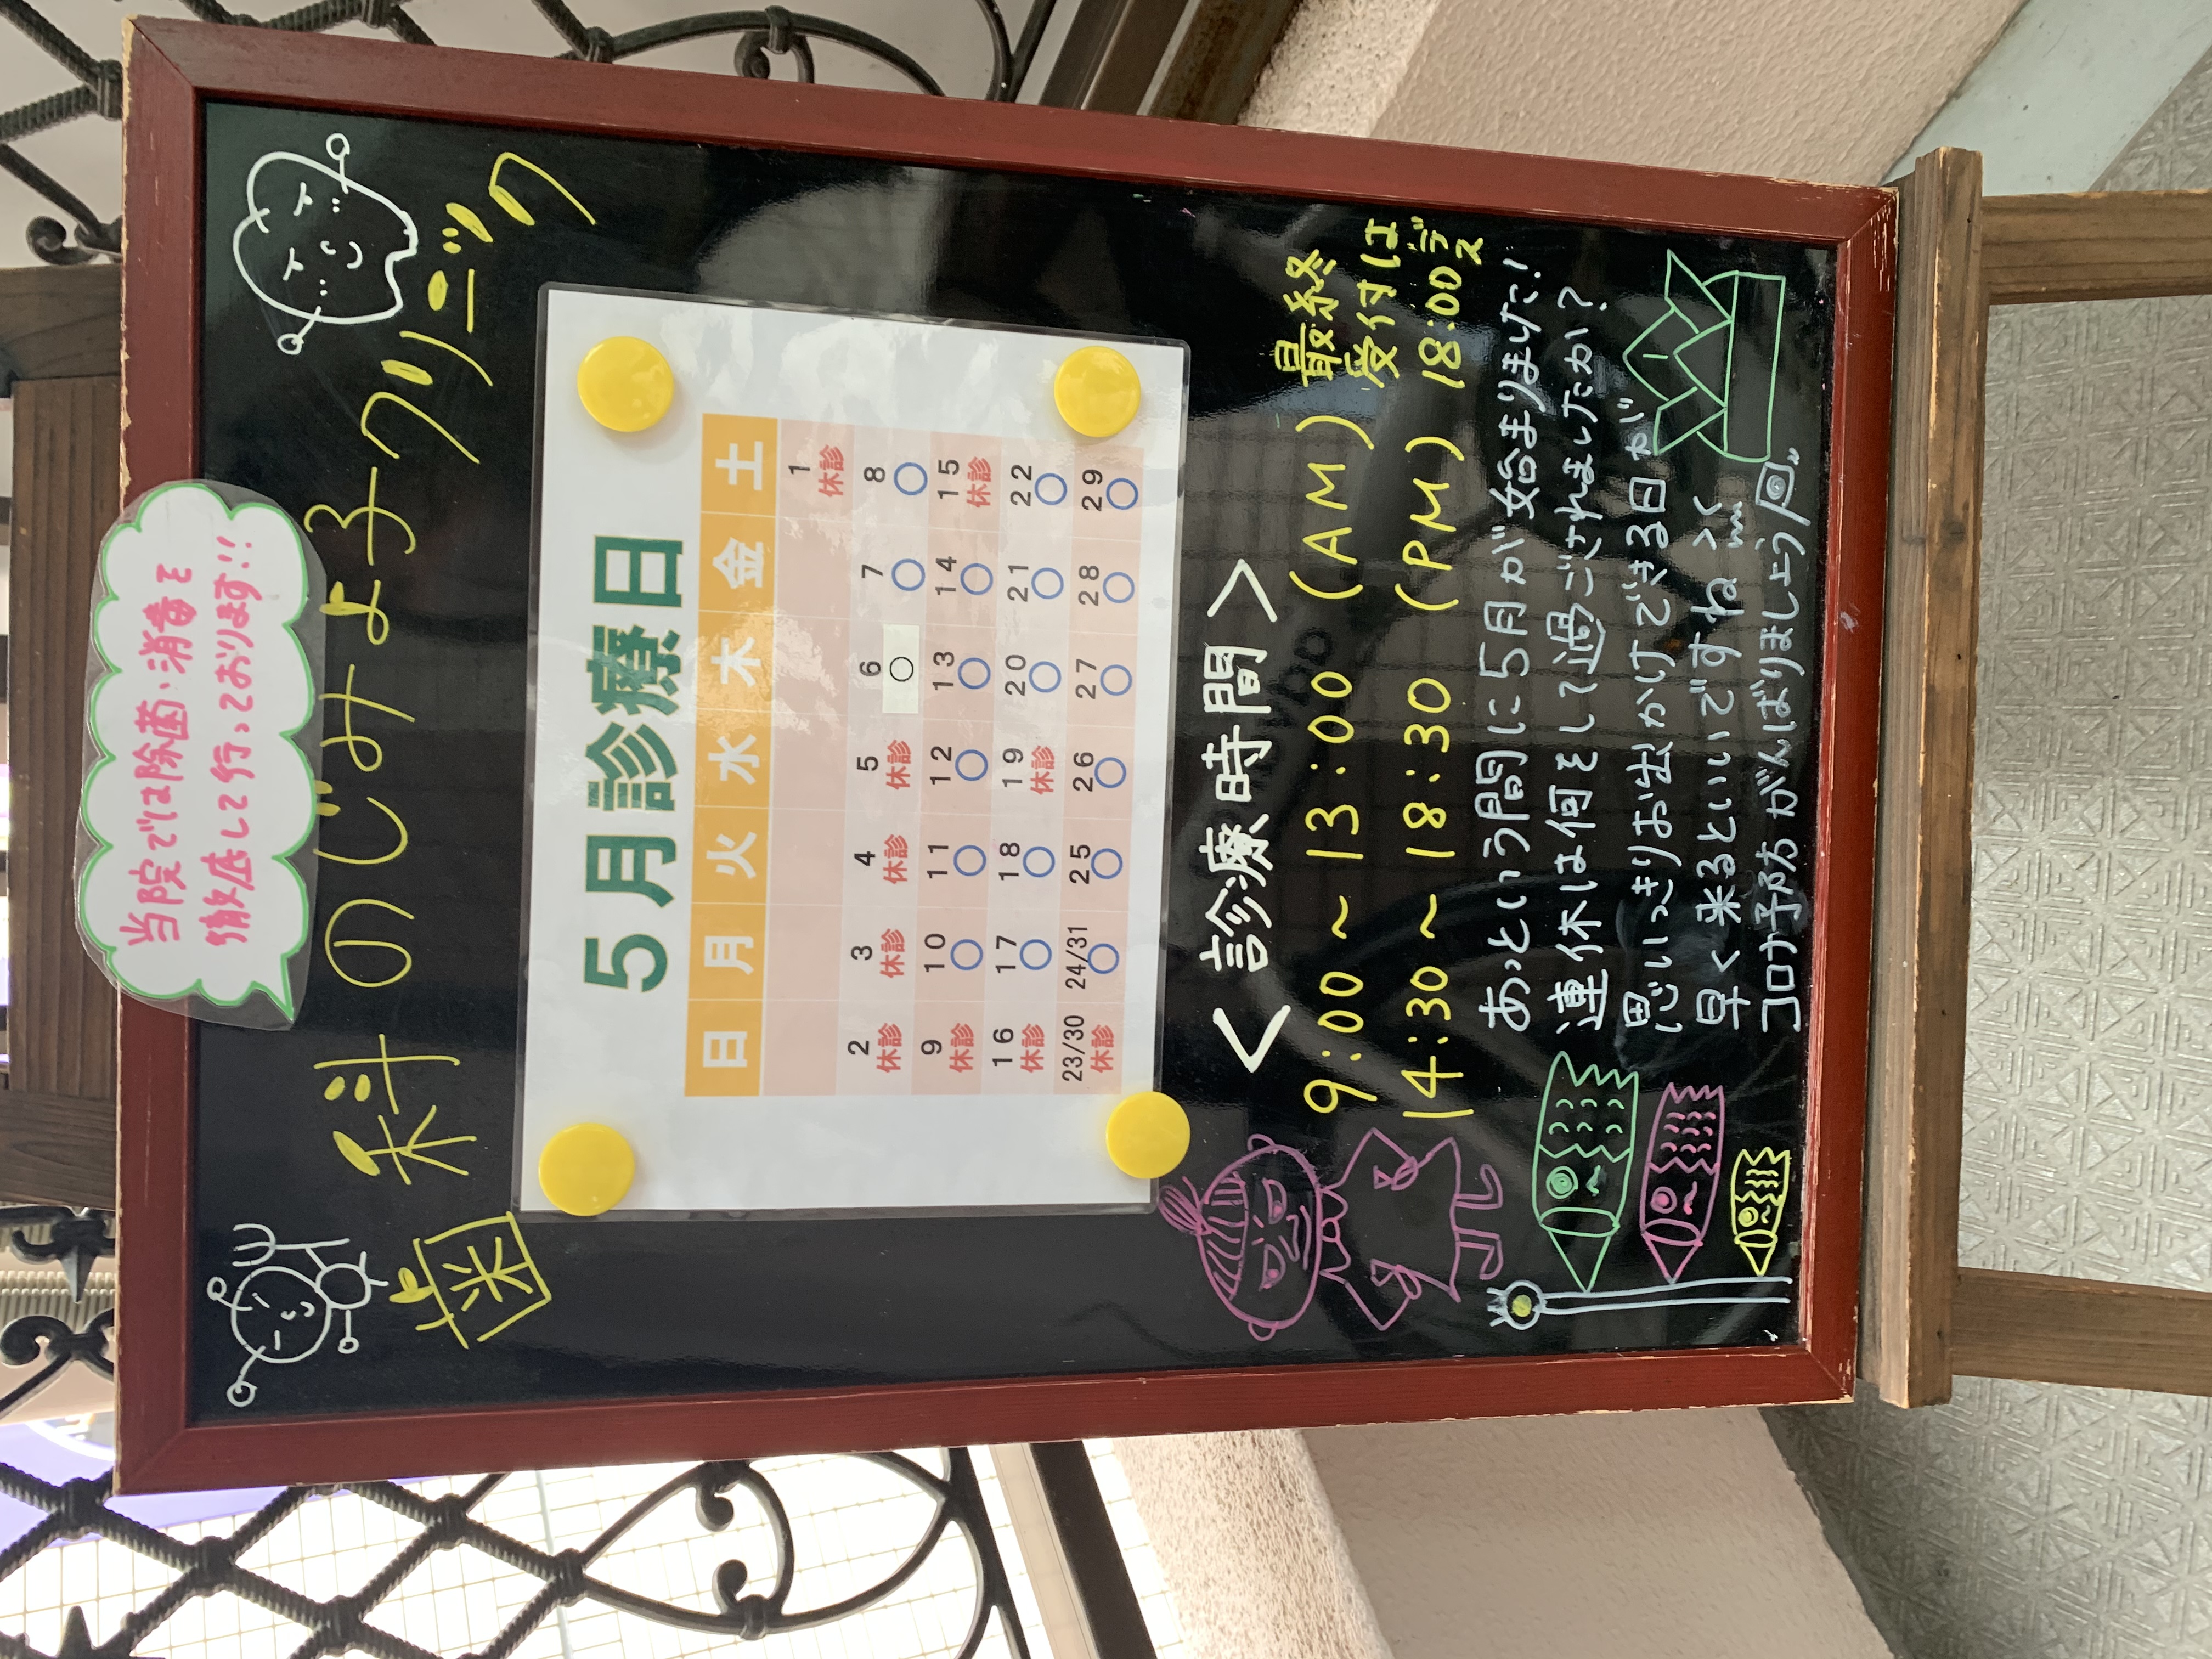 当院では除菌・消毒を
徹底して行っております!!
歯科のじみよ子クリニック
5月診療日
日 月 火 水 木 金 土
1
休診
2 3 4 5 6 7 8
休診 休診 休診 休診 ○ ○ ○
9 10 11 12 13 14 15
休診 ○ ○ ○ ○ ○ 休診
16 17 18 19 20 21 22
休診 ○ ○ 休診 ○ ○ ○
23/30 24/31 25 26 27 28 29
休診 ○ ○ ○ ○ ○ ○
<診療時間>
9:00~13:00 (AM)
14:30~18:30 (PM)
最終
受付は
18:00デス
あっという間に5月が始まりました!
連休は何をして過ごされましたか?
思いっきりお出かけできる日が
早く来るといいですね><
コロナ予防がんばりましょう